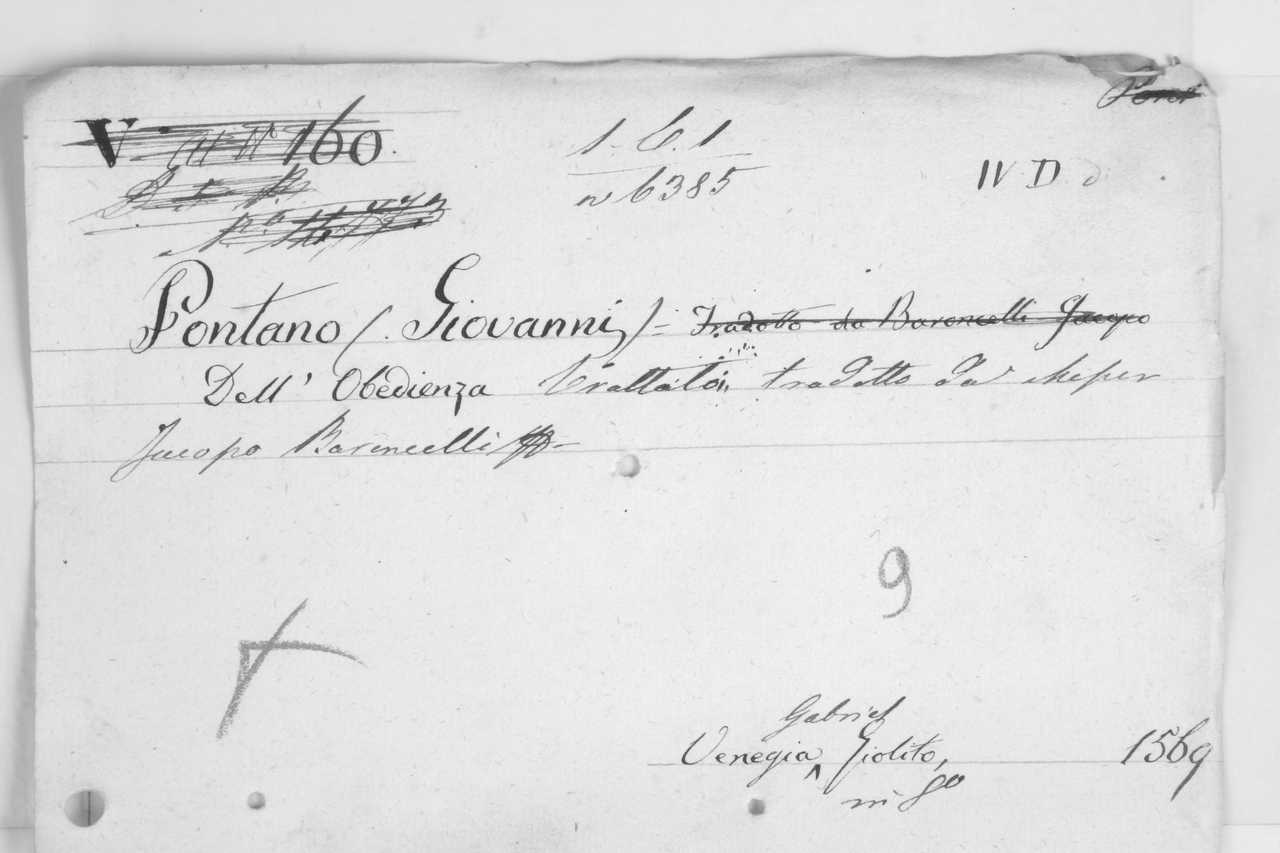 V 160
1. 6. 1
n 6385
IV D
Pontano (Giovanni) = Tradotto da Baroncelli Jacopo
Dell' Obedienza Trattato, tradotto da
Jacopo Baroncelli
9
Gabriel
Venegia ^ Giolito, 1569
in 8º